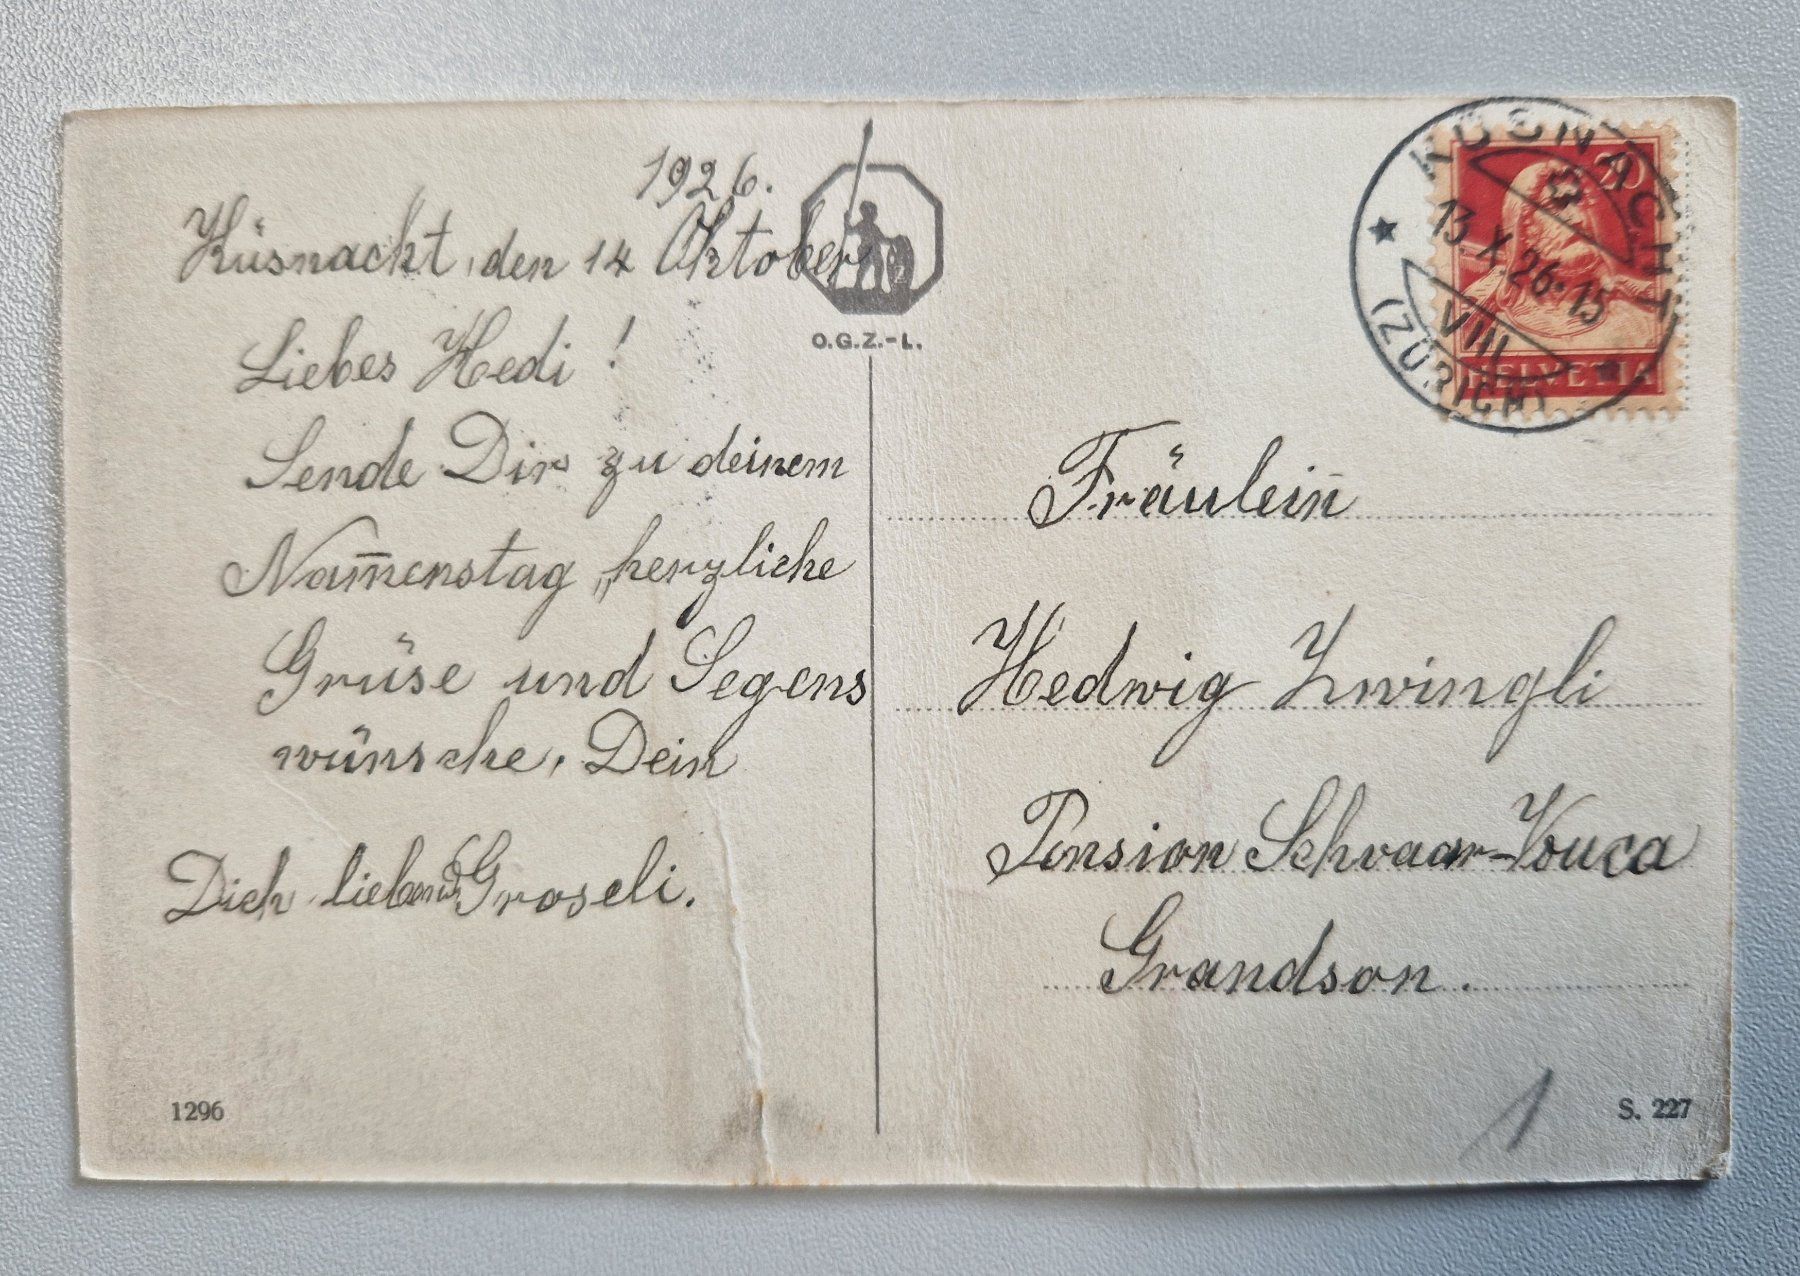 1926.
Küsnacht, den 14 Oktober
Liebes Hedi!
Sende Dir zu deinem
Nam̅enstag „herzliche
Grüse und Segens
wünsche, Dein
Dich liebend Groseli.
1296
O.G.Z.-L.
KÜSNACHT
13.X.26.15
VIII
(ZÜRICH)
20
HELVETIA
Fräulein̅
Hedwig Zwingli
Pension Schvaar-Vouca
Grandson.
1
S. 227